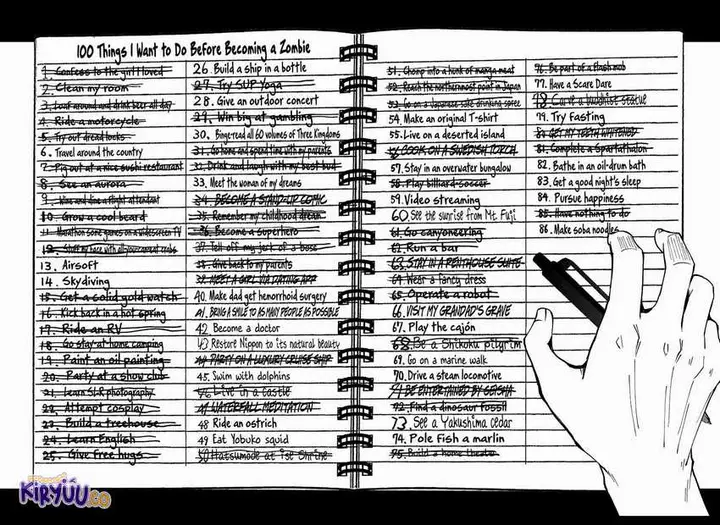 100 Things I Want to Do Before Becoming a Zombie
1. Confess to the girl I loved
2. Clean my room
3. Loaf around and drink beer all day
4. Ride a motorcycle
5. Try out dread locks
6. Travel around the country
7. Pig out at a nice sushi restaurant
8. See an aurora
9. Wine and dine a flight attendant
10. Grow a cool beard
11. Marathon some games on a widescreen TV
12. Stuff my face with all-you-can-eat crabs
13. Airsoft
14. Skydiving
15. Get a solid gold watch
16. Kick back in a hot spring
17. Ride an RV
18. Go stay-at-home camping
19. Paint an oil painting
20. Party at a show club
21. Learn SLR photography
22. Attempt cosplay
23. Build a treehouse
24. Learn English
25. Give free hugs
26. Build a ship in a bottle
27. Try SUP Yoga
28. Give an outdoor concert
29. Win big at gambling
30. Binge-read all 60 volumes of Three Kingdoms
31. Go home and spend time with my parents
32. Drink and laugh with my best bud
33. Meet the woman of my dreams
34. BECOME A STAND-UP COMIC
35. Remember my childhood dream
36. Become a superhero
37. Tell off my jerk of a boss
38. Give back to my parents
39. MEET A GIRL VIA DATING APP
40. Make dad get hemorrhoid surgery
41. BRING A SMILE TO AS MANY PEOPLE AS POSSIBLE
42. Become a doctor
43 Restore Nippon to its natural beauty
44. PARTY ON A LUXURY CRUISE SHIP
45. Swim with dolphins
46 Live in a castle
47 WATERFALL MEDITATION
48 Ride an ostrich
49 Eat Yobuko squid
50 Hatsumode at Ise Shrine
51. Chomp into a hunk of manga meat
52. Reach the northernmost point in Japan
53. Go on a Japanese sake drinking spree
54. Make an original T-shirt
55. Live on a deserted island
56 COOK ON A SWEDISH TORCH
57. Stay in an overwater bungalow
58. Play billiard-soccer
59. Video streaming
60. See the sunrise from Mt. Fuji
61. Go canyoneering
62. Run a bar
63. STAY IN A PENTHOUSE SUITE
64 Wear a fancy dress
65. Operate a robot
66. VISIT MY GRANDAD'S GRAVE
67. Play the cajón
68. Be a Shikoku pilgrim
69. Go on a marine walk
70. Drive a steam locomotive
71 BE ENTERTAINED BY GEISHA
72. Find a dinosaur fossil
73. See a Yakushima cedar
74. Pole Fish a marlin
75. Build a home theater
76. Be part of a flash mob
77. Have a Scare Dare
78 Carve a buddhist statue
79. Try Fasting
80 GET MY TEETH WHITENED
81. Complete a Spartathalon
82. Bathe in an oil-drum bath
83. Get a good night's sleep
84. Pursue happiness
85. Have nothing to do
86. Make soba noodles
KIRYUU.CO